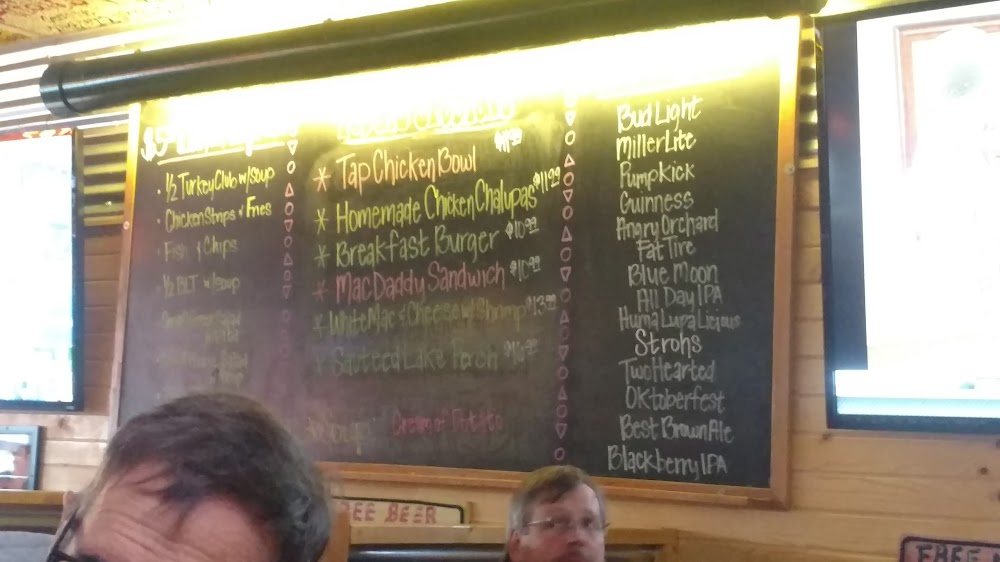 ½ Turkey Club w/soup
Chicken Strips & Fries
Fish & Chips
½ BLT w/soup
Tap Chicken Bowl $11.99
Homemade Chicken Chalupas $11.99
Breakfast Burger $10.99
Mac Daddy Sandwich $10.99
White Mac & Cheese w/Shrimp $13.99
Lake Perch
Soup Cream of Potato
Bud Light
Miller Lite
Pumpkick
Guinness
Angry Orchard
Fat Tire
Blue Moon
All Day IPA
Huma Lupa Licious
Strohs
Two Hearted
Oktoberfest
Best Brown Ale
Blackberry IPA
FREE BEER
FREE